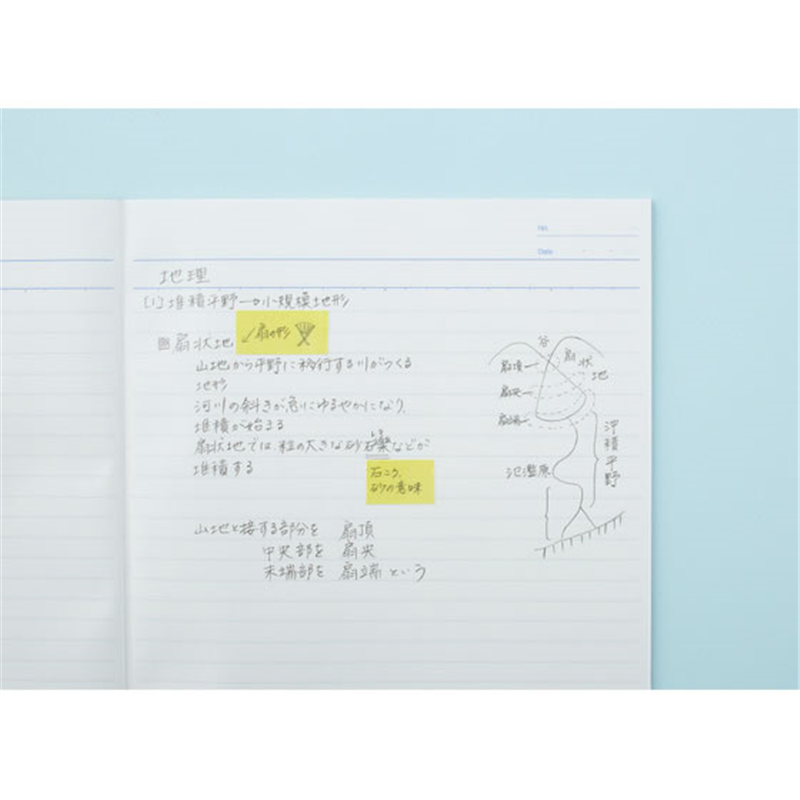 No.
Date
地理
(1)堆積平野→小規模地形
扇状地
↙扇の形
山地から平野に移行する川がつくる
地形
河川の斜きが急にゆるやかになり、
堆積が始まる
扇状地では、粒の大きな砂礫などが
堆積する
石ころ、
砂の意味
山地と接する部分を 扇頂
中央部を 扇央
末端部を 扇端 という
谷
扇状地
扇頂
扇央
扇端
氾濫原
沖積平野